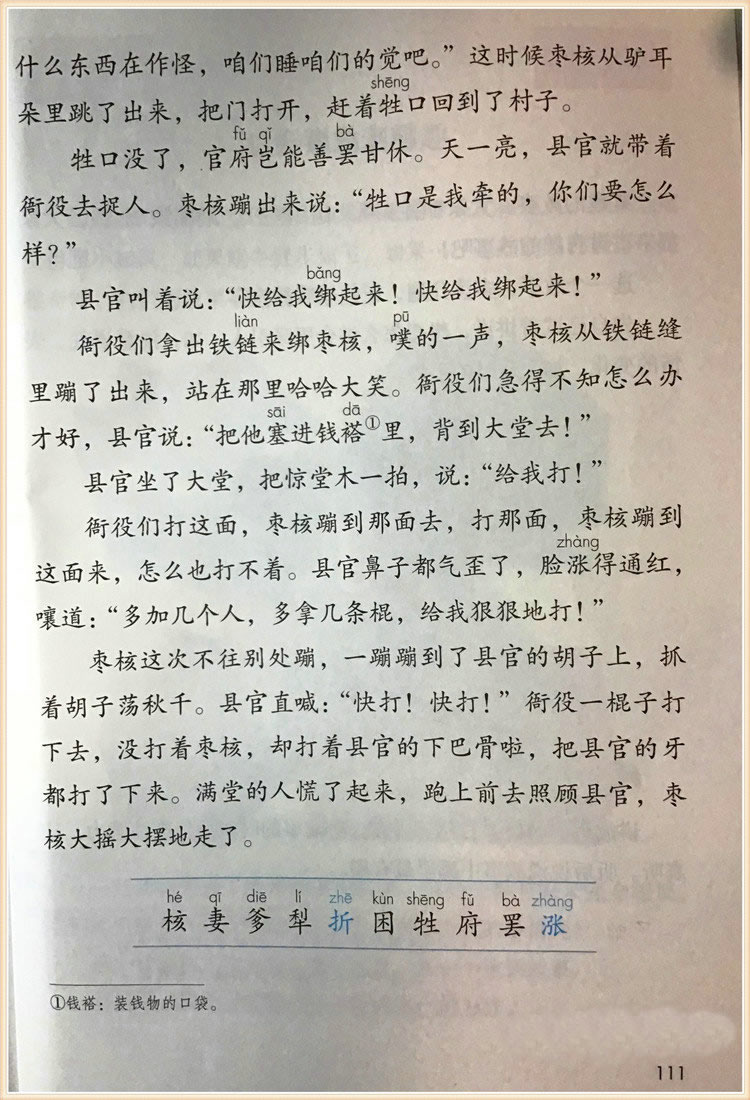 什么东西在作怪，咱们睡咱们的觉吧。”这时候枣核从驴耳
shēng
朵里跳了出来，把门打开，赶着牲口回到了村子。
fǔ qǐ bà
牲口没了，官府岂能善罢甘休。天一亮，县官就带着
衙役去捉人。枣核蹦出来说：“牲口是我牵的，你们要怎么
样？”
bǎng
县官叫着说：“快给我绑起来！快给我绑起来！”
liàn pū
衙役们拿出铁链来绑枣核，噗的一声，枣核从铁链缝
里蹦了出来，站在那里哈哈大笑。衙役们急得不知怎么办
sāi dā
才好，县官说：“把他塞进钱褡①里，背到大堂去！”
县官坐了大堂，把惊堂木一拍，说：“给我打！”
衙役们打这面，枣核蹦到那面去，打那面，枣核蹦到
zhàng
这面来，怎么也打不着。县官鼻子都气歪了，脸涨得通红，
嚷道：“多加几个人，多拿几条棍，给我狠狠地打！”
枣核这次不往别处蹦，一蹦蹦到了县官的胡子上，抓
着胡子荡秋千。县官直喊：“快打！快打！”衙役一棍子打
下去，没打着枣核，却打着县官的下巴骨啦，把县官的牙
都打了下来。满堂的人慌了起来，跑上前去照顾县官，枣
核大摇大摆地走了。
hé qī diē lí zhē kùn shēng fǔ bà zhàng
核 妻 爹 犁 折 困 牲 府 罢 涨
①钱褡：装钱物的口袋。
111